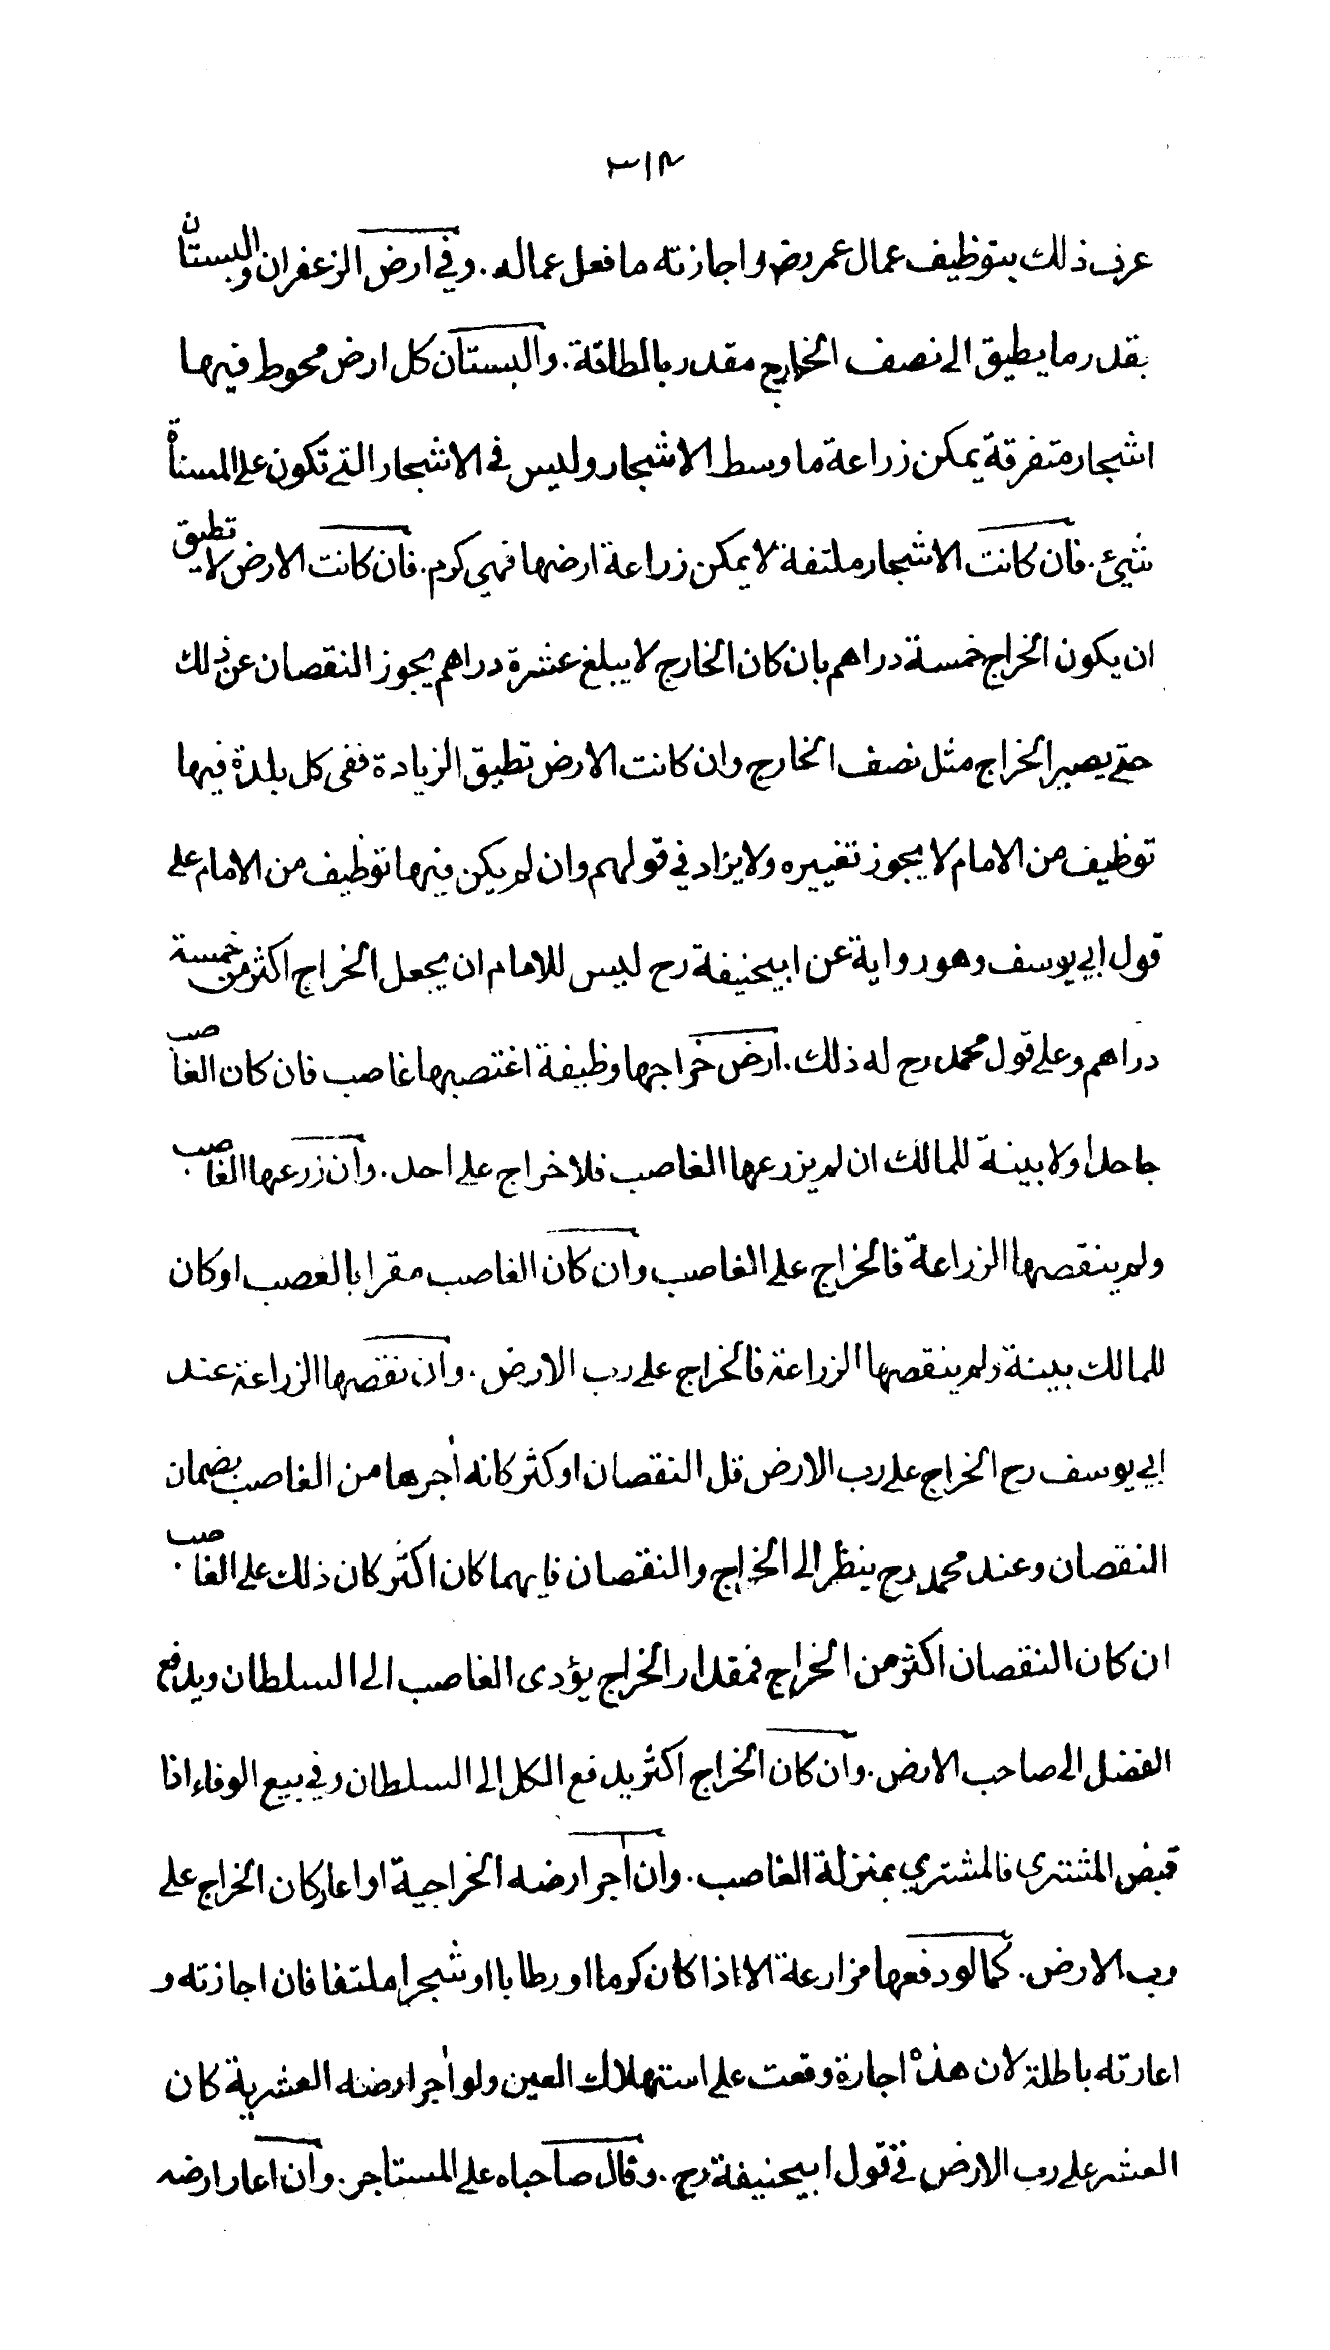 ٣١٤
عرف ذلك بتوظيف عمال عمر رض واجازته ما فعل عماله . وفي ارض الزعفران والبستان
بقدر ما يطيق الى نصف الخارج مقدر بالطاقة . والبستان كل ارض محوط فيها
اشجار متفرقة يمكن زراعة ما وسط الاشجار وليس في الاشجار التي تكون على المسناة
شيئ . فان كانت الاشجار ملتفة لا يمكن زراعة ارضها فهي كرم . فان كانت الارض لا تطيق
ان يكون الخراج خمسة دراهم بان كان الخارج لا يبلغ عشرة دراهم يجوز النقصان عن ذلك
حتى يصير الخراج مثل نصف الخارج وان كانت الارض تطيق الزيادة ففى كل بلدة فيها
توظيف من الامام لا يجوز تغييره ولا يزاد في قولهم وان لم يكن فيها توظيف من الامام على
قول ابي يوسف وهو رواية عن ابيحنيفة رح ليس للامام ان يجعل الخراج اكثر من خمسة
دراهم وعلى قول محمد رح له ذلك . ارض خراجها وظيفة اغتصبها غاصب فان كان الغاصب
جاحدا ولا بينة للمالك ان لم يزرعها الغاصب فلا خراج على احد . وان زرعها الغاصب
ولم ينقصها الزراعة فالخراج على الغاصب وان كان الغاصب مقرا بالغصب او كان
للمالك بينة ولم ينقصها الزراعة فالخراج على رب الارض . وان نقصها الزراعة عند
ابي يوسف رح الخراج على رب الارض قل النقصان او كثر كانه أجرها من الغاصب بضمان
النقصان وعند محمد رح ينظر الى الخراج والنقصان فايهما كان اكثر كان ذلك على الغاصب
ان كان النقصان اكثر من الخراج فمقدار الخراج يؤدى الغاصب الى السلطان ويدفع
الفضل الى صاحب الارض . وان كان الخراج اكثر يدفع الكل الى السلطان وفي بيع الوفاء اذا
قبض المشترى فالمشتري بمنزلة الغاصب . وان أجر ارضه الخراجية او اعار كان الخراج على
رب الارض . كما لو دفعها مزارعة الا اذا كان كرما او رطابا او شجرا ملتفا فان اجازته و
اعارته باطلة لان هذه اجارة وقعت على استهلاك العين ولو أجر ارضه العشرية كان
العشر على رب الارض في قول ابيحنيفة رح . وقال صاحباه على المستاجر . وان اعار ارضه